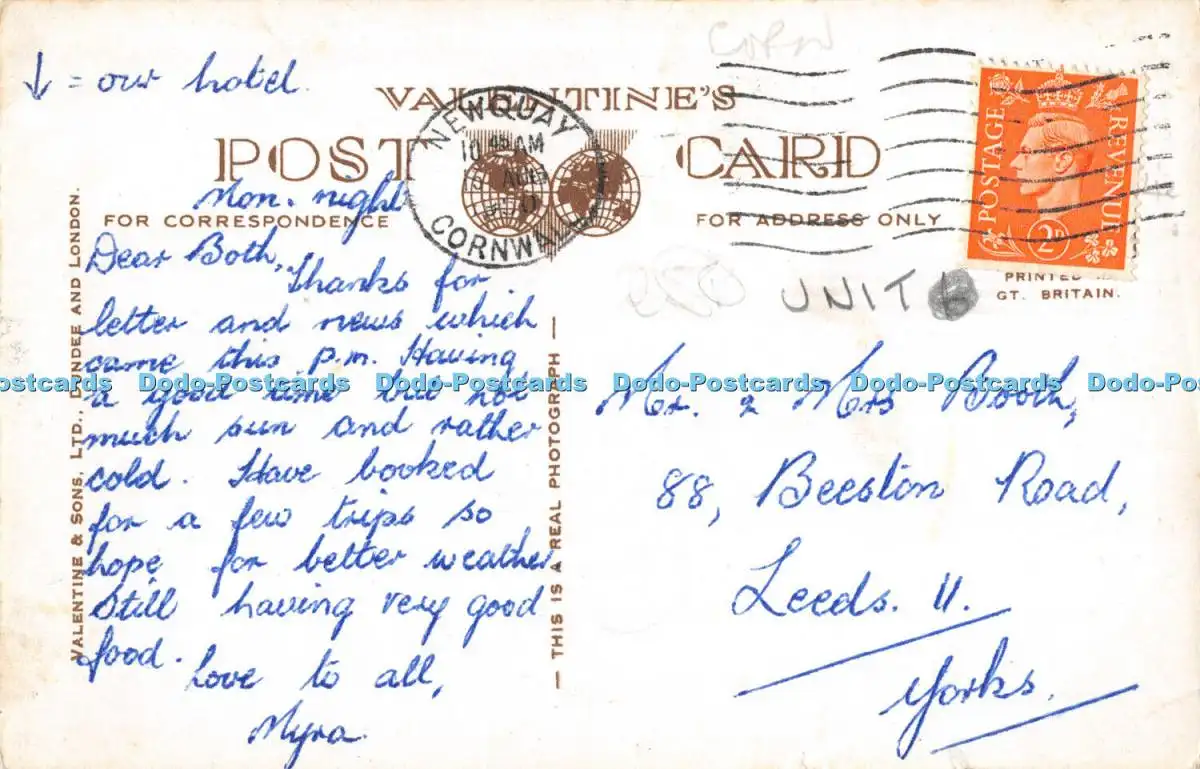 ↓ = our hotel.
CORN
VALENTINE'S
POST CARD
NEWQUAY
CORNWALL
10 AM
AUG
POSTAGE REVENUE
2D
FOR CORRESPONDENCE
FOR ADDRESS ONLY
PRINTED
GT. BRITAIN.
UNIT 6
VALENTINE & SONS, LTD., DUNDEE AND LONDON.
Mon. night
Dear Both,
Thanks for
letter and news which
came this p.m. Having
a good time but not
much sun and rather
cold. Have booked
for a few trips so
hope for better weather
Still having very good
food.
Love to all,
Myra.
— THIS IS A REAL PHOTOGRAPH —
Mr. & Mrs Booth,
88, Beeston Road,
Leeds. 11.
Yorks.
Dodo-Postcards Dodo-Postcards Dodo-Postcards Dodo-Postcards Dodo-Postcards Dodo-Postcards